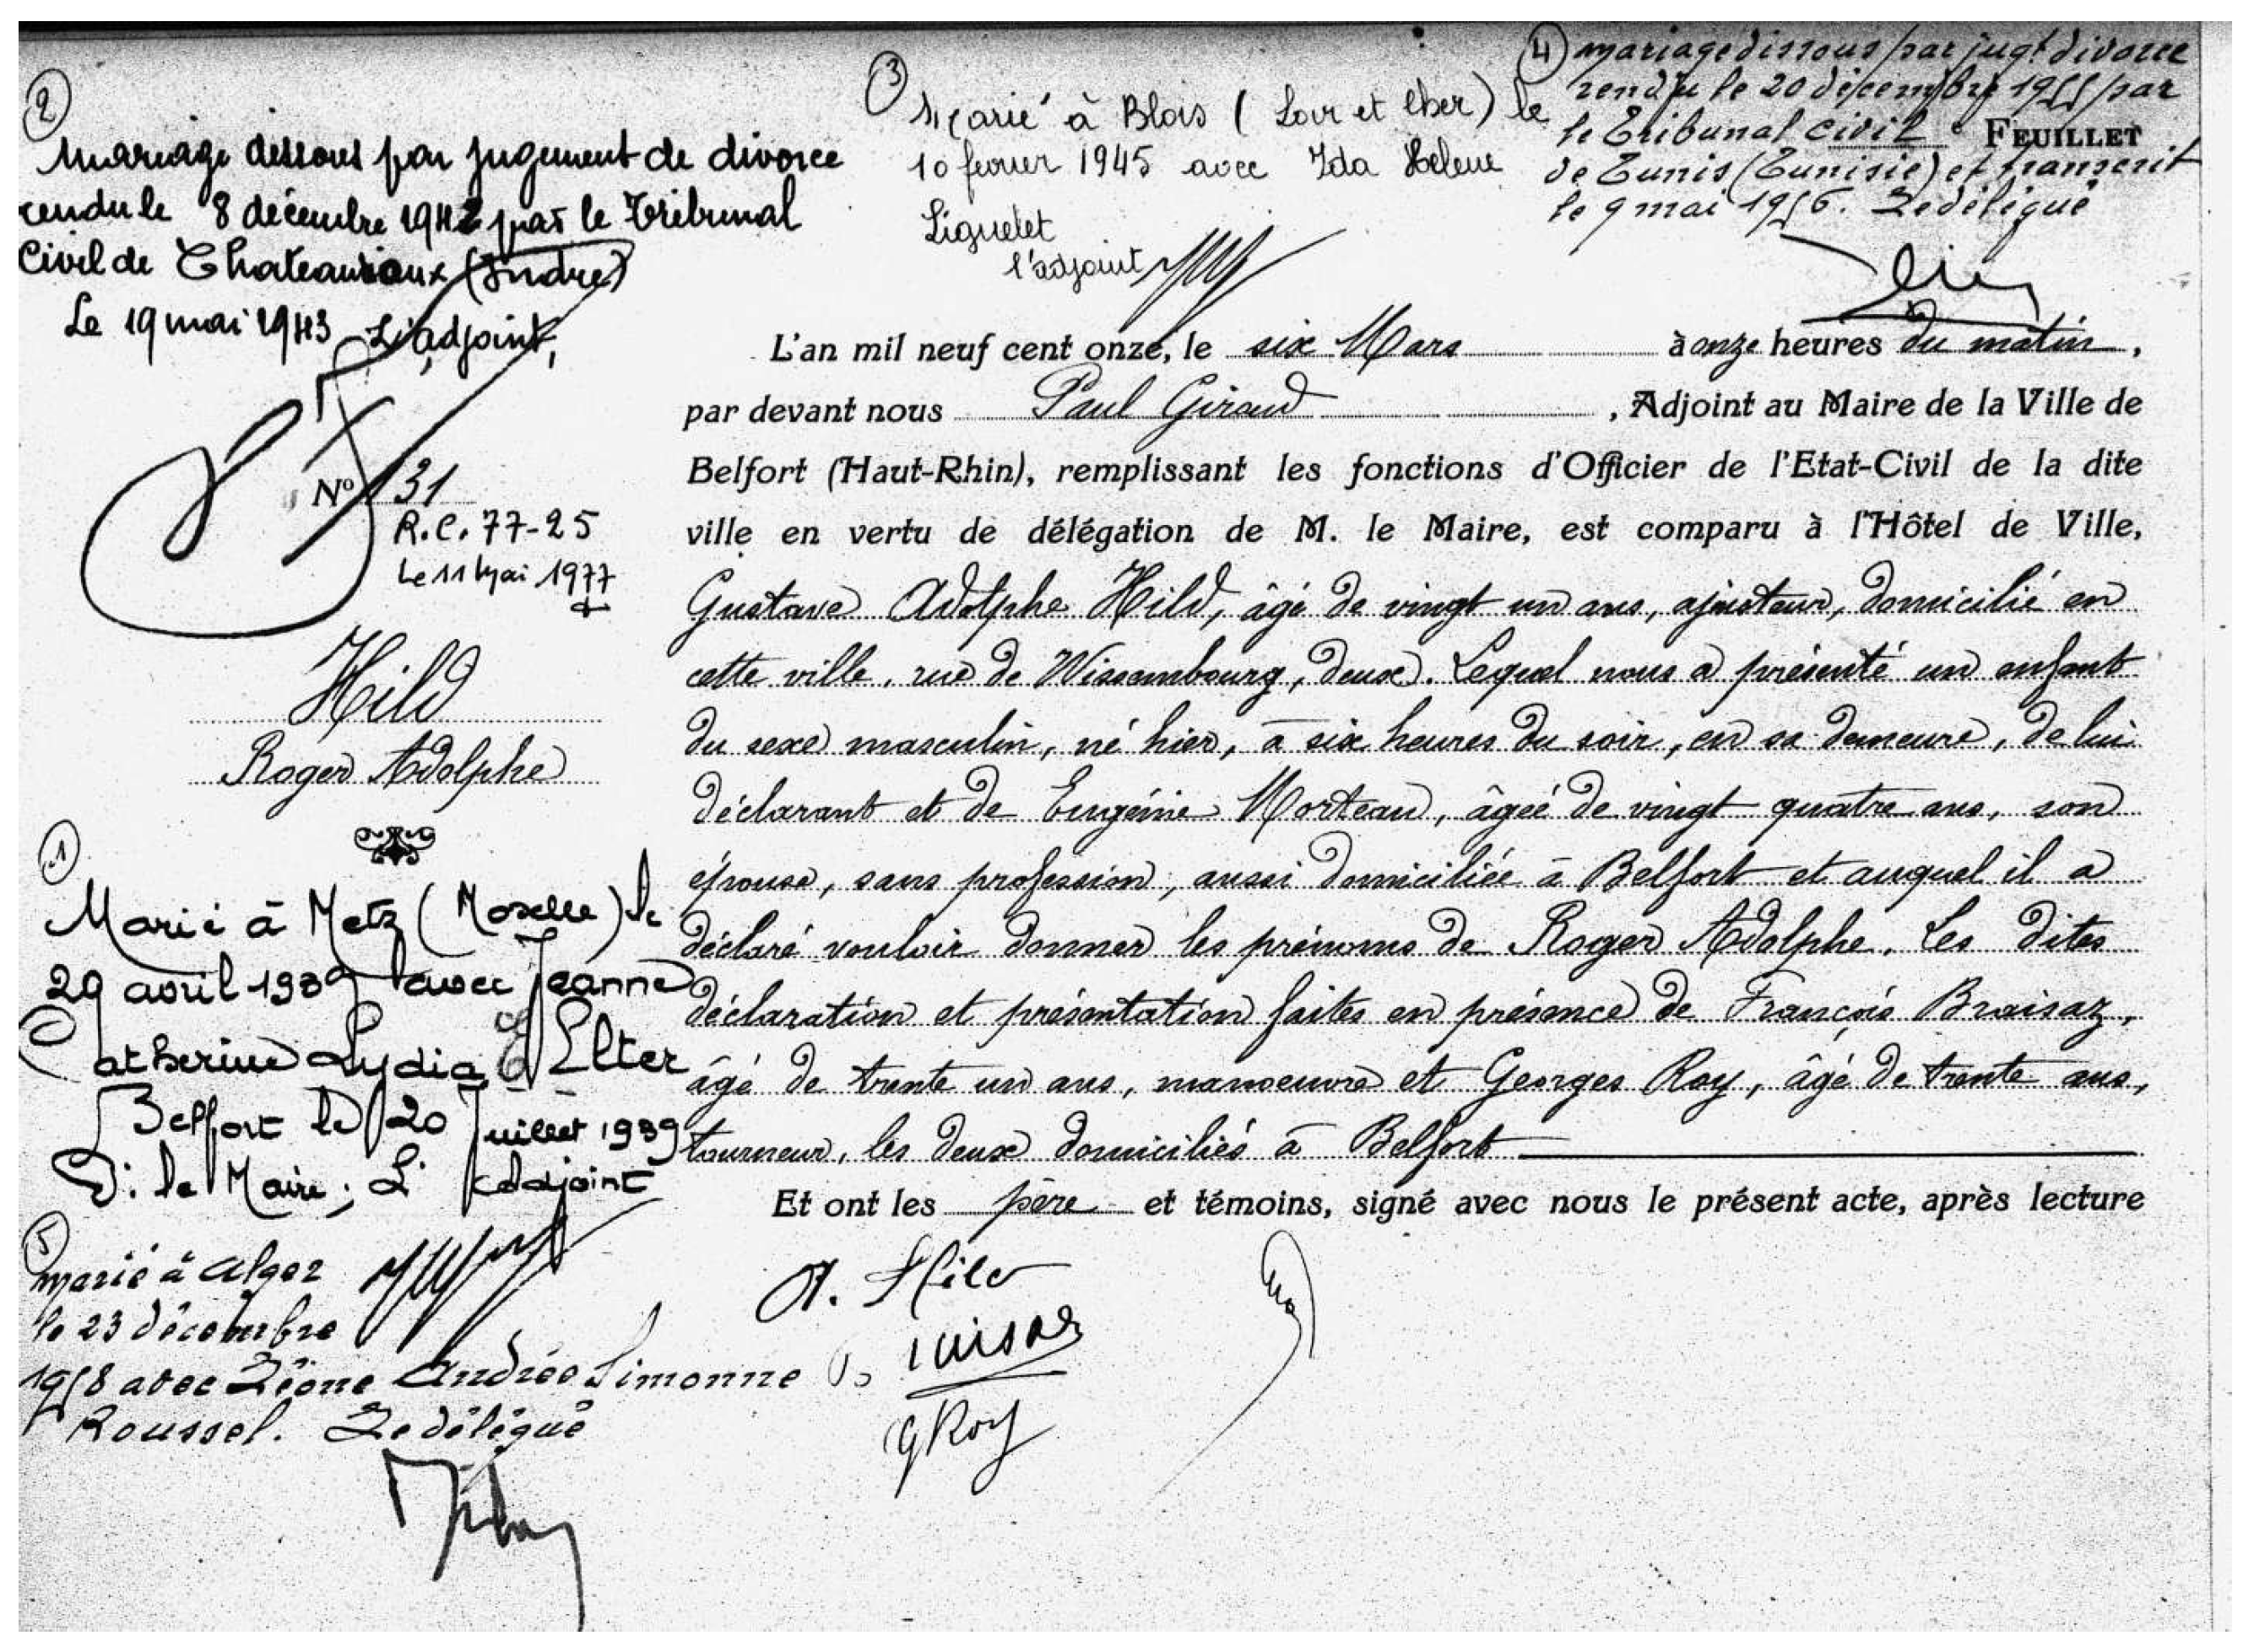 ②
Mariage dissous par jugement de divorce
rendu le 8 décembre 1942 par le Tribunal
Civil de Chateauroux (Indre)
Le 19 mai 1943 L'adjoint,
③
Marié à Blois (Loir et Cher) le
10 fevrier 1945 avec Ida Helene
Liguelet
l'adjoint
④ mariage dissous par jugt divorce
rendu le 20 décembre 1955 par
le Tribunal civil
FEUILLET
de Tunis (Tunisie) et transcrit
le 9 mai 1956. Le délégué
N° 131
R.C. 77-25
Le 11 Mai 1977
Hild
Roger Adolphe
①
Marié à Metz (Moselle) le
29 avril 1939 avec Jeanne
Catherine Lydia Elter
Belfort le 20 Juillet 1939
P. le Maire ; L'Adjoint
⑤
marié à Alger
le 23 décembre
1958 avec Léone Andrée Simonne
Roussel. Le délégué
L'an mil neuf cent onze, le six Mars à onze heures du matin,
par devant nous Paul Giraud, Adjoint au Maire de la Ville de
Belfort (Haut-Rhin), remplissant les fonctions d'Officier de l'Etat-Civil de la dite
ville en vertu de délégation de M. le Maire, est comparu à l'Hôtel de Ville,
Gustave Adolphe Hild, âgé de vingt un ans, ajusteur, domicilié en
cette ville, rue de Wissembourg, deux. Lequel nous a présenté un enfant
du sexe masculin, né hier, à six heures du soir, en sa demeure, de lui
déclarant et de Eugénie Morteau, âgée de vingt quatre ans, son
épouse, sans profession, aussi domiciliée à Belfort et auquel il a
déclaré vouloir donner les prénoms de Roger Adolphe. Les dites
déclaration et présentation faites en présence de François Braisaz,
âgé de trente un ans, manoeuvre et Georges Roy, âgé de trente ans,
tourneur, les deux domiciliés à Belfort
Et ont les père et témoins, signé avec nous le présent acte, après lecture
A. Hild
G Roy